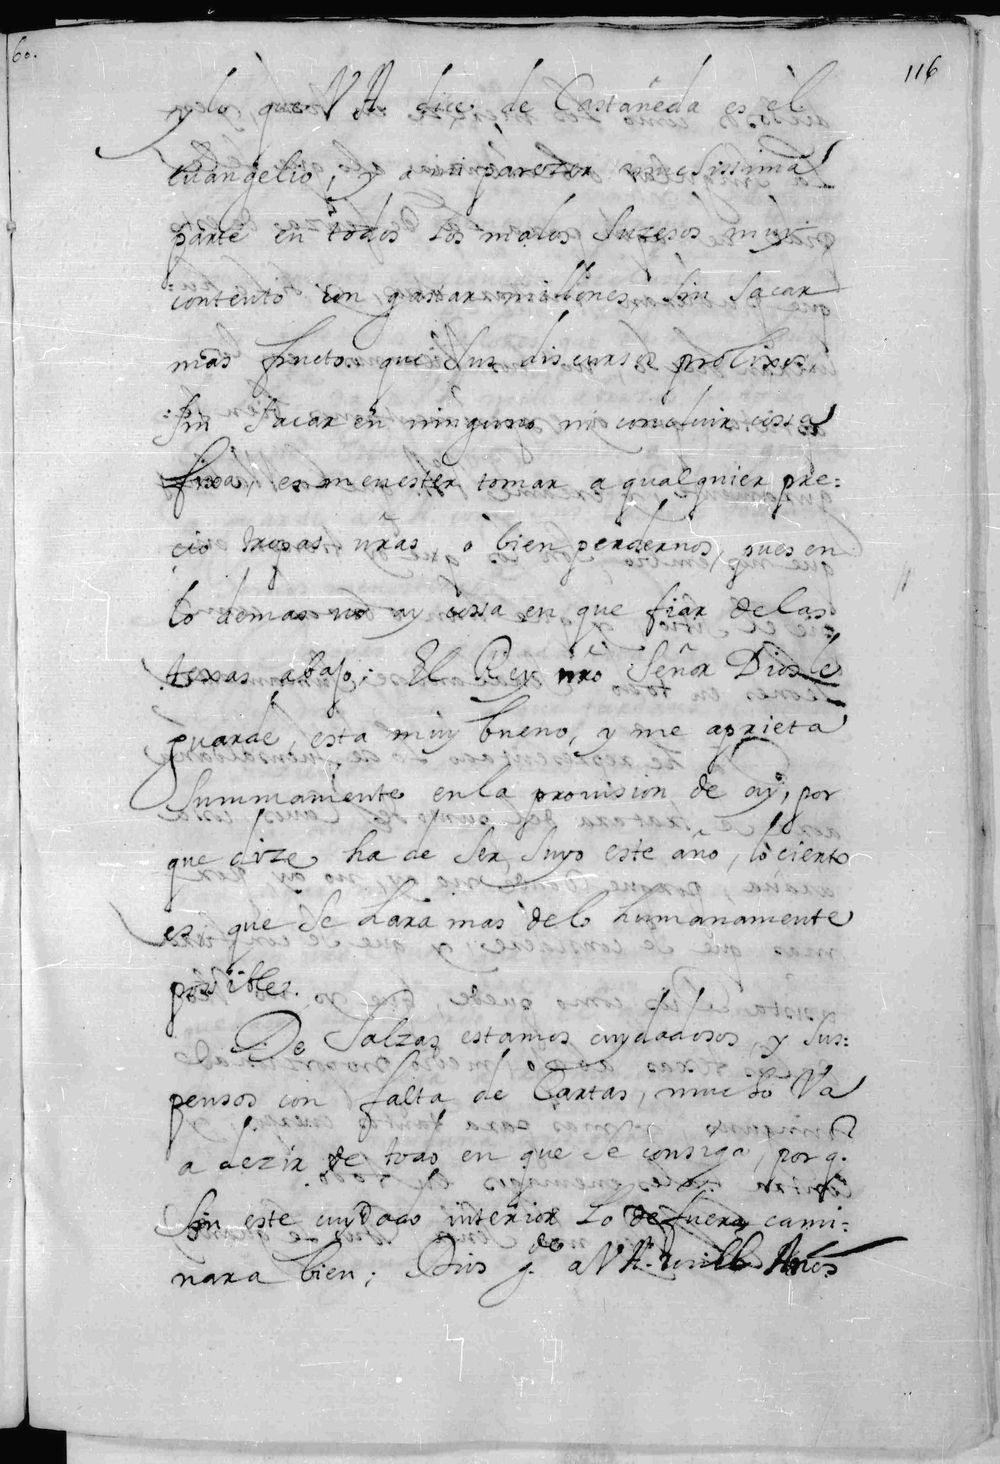 60.
116
y lo que V A. dice de Castañeda es el
evangelio, y a mi parezer
parte en todos los malos suzesos muy
contento con gastar millones, sin sacar
mas fructo que sus discursos prolixos
sin sacar en ninguno ni concluir cossa
fixa, es menester tomar a qualquier pre:
cio tropas nr̃as o bien perdernos, pues en
lo demas no ay cossa en que fiar de las
texas abajo; El Rey nrõ Señor Dios le
guarde, esta muy bueno, y me aprieta
summamente en la provision de ay, por
que dize ha de ser suyo este año, lo cierto
es que se hara mas delo humanamente
posible.
De Salzas estamos cuydadosos, y sus:
pensos con falta de Cartas, mucho va
a dezir de todo en que se consiga, por q.
sin este cuydado interior lo de fuera cami:
nara bien; Dios g.de a V A.